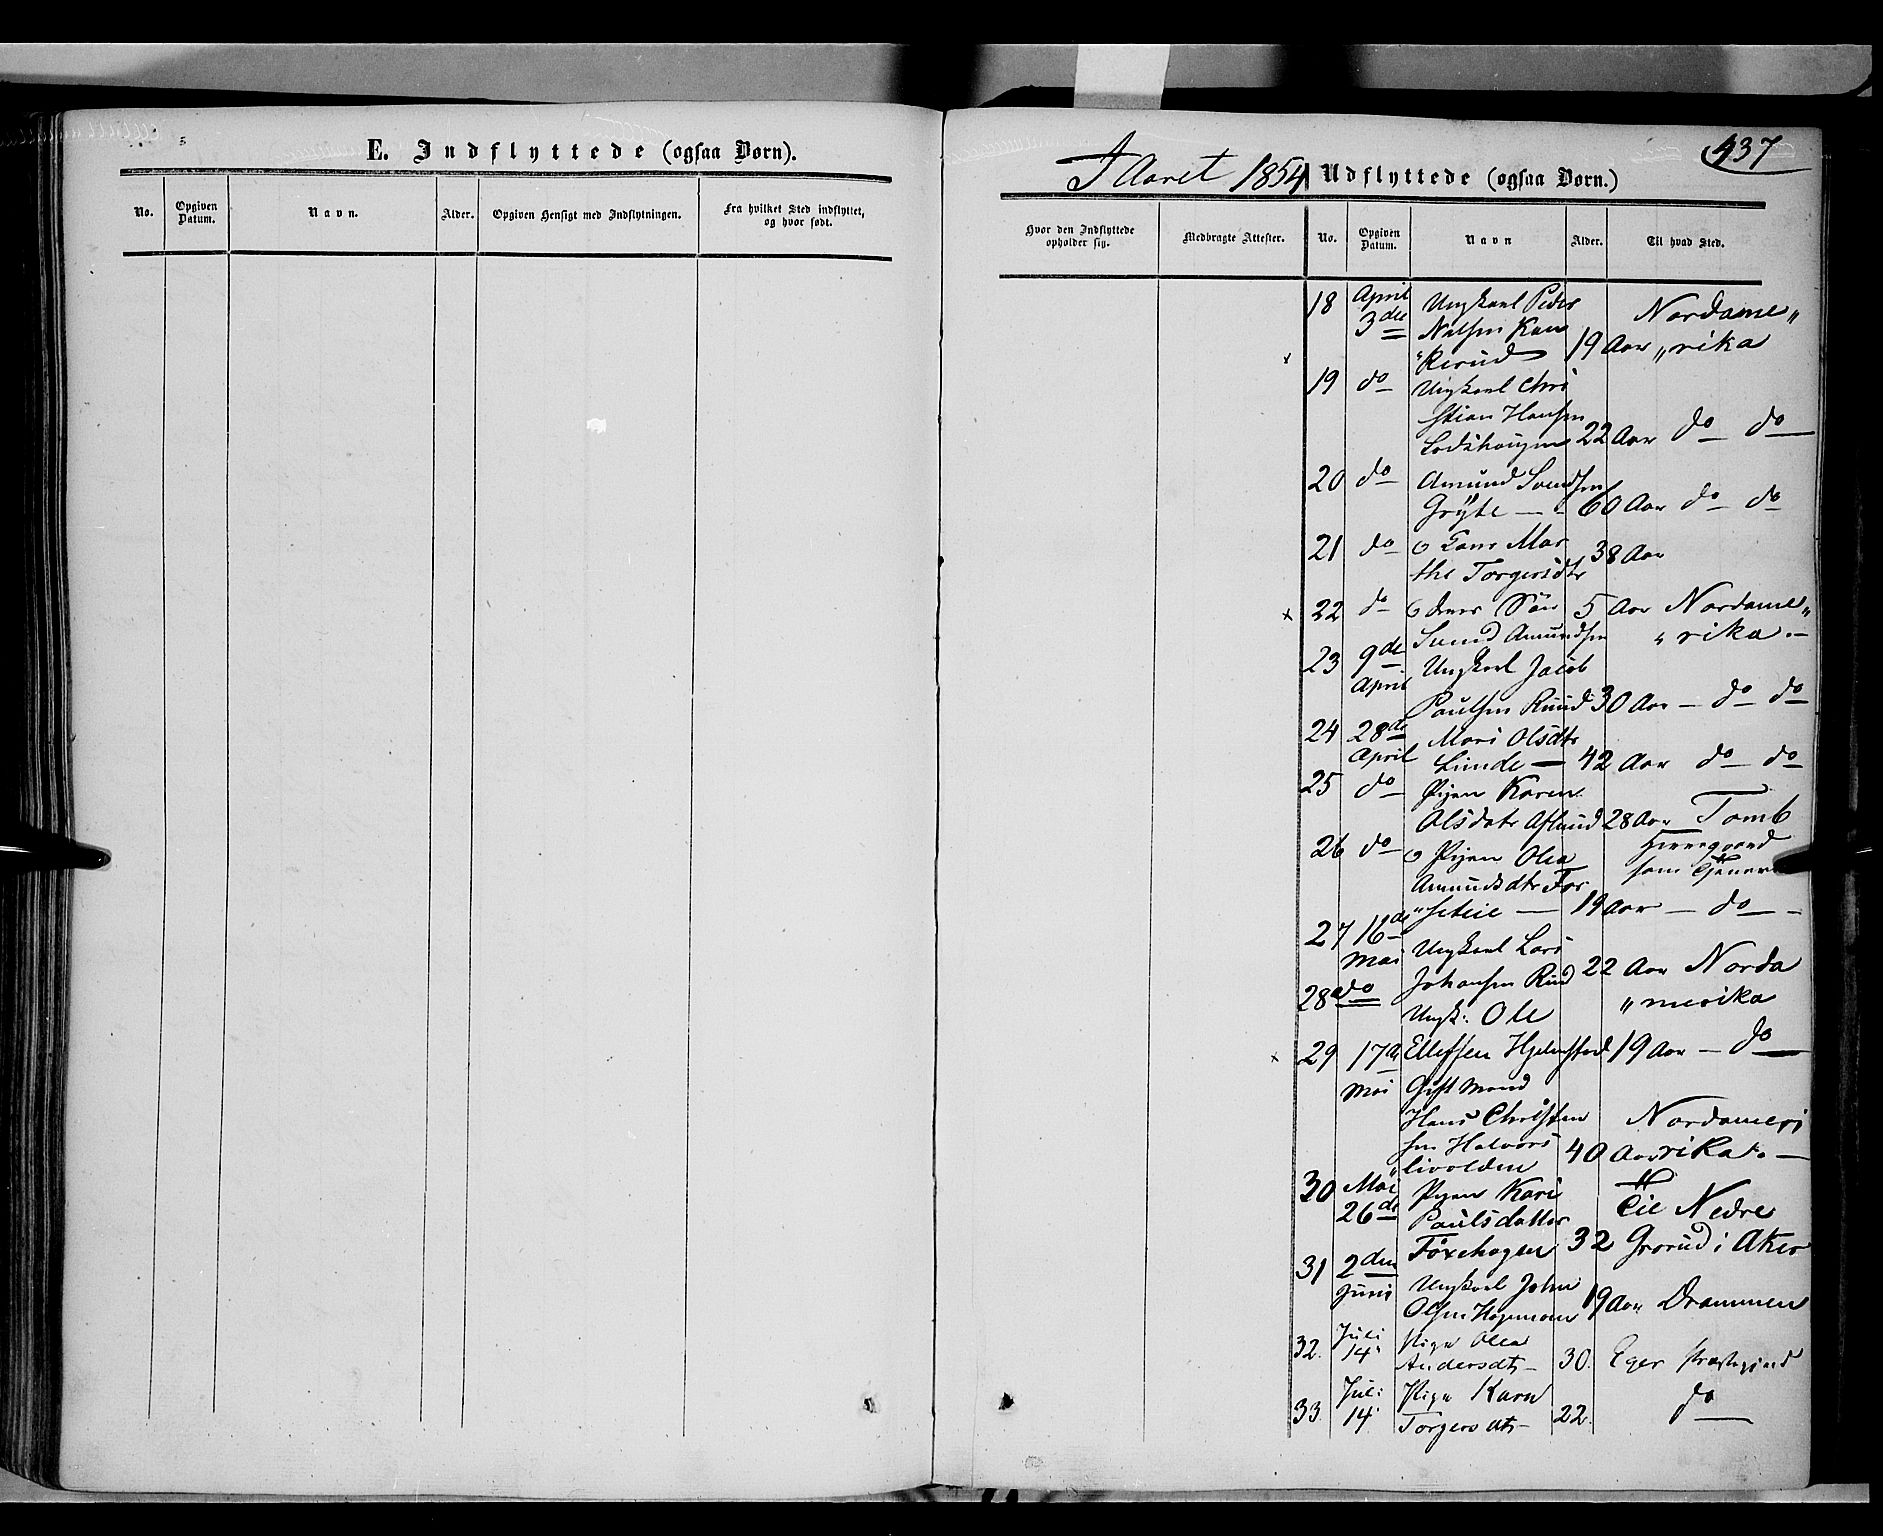 E. Indflyttede (ogsaa Børn).
No.
Opgiven Datum.
Navn.
Alder.
Opgiven Hensigt med Indflytningen.
Fra hvilket Sted indflyttet, og hvor født.
437
I Aaret 1854 Udflyttede (ogsaa Børn.)
Hvor den Indflyttede opholder sig.
Medbragte Attester.
No.
Opgiven Datum.
Navn
Alder.
Til hvad Sted.
18 April Ungkarl Peder Nordame„
3die Nelsen Kan
„kerud 19 Aar „rika
19 do Ungkarl Chri
stian Hansen
Lodshougen 22 Aar do do
20 do Amund Svendsen
Gryte 60 Aar do do
21 do Mar 38 Aar
the Torgersdtr
22 do deres Søn 5 Aar Nordame„
Svend Amundsen „rika.
23 9de Ungkarl Jacob
April
Paulsen Ruud 30 Aar do do
24 28de Mari Olsdtr
April Lunde 42 Aar do do
25 do Pigen Karen
Olsdatr Aslund 28 Aar Tomb
26 do Pigen Olea Herregaard
Amundsdtr For som
„seteie 19 Aar do
27 16de Ungkarl Lars
Mai Johansen Ruud 22 Aar Norda
28 do Ungk: Ole „merika
29 17de Ellefsen Hjelmstad 19 Aar do
Mai Gift Mand
Hans Christen Nordameri
sen Halvors
„livolden 40 Aar rika.
30 Mai Pigen Kari
26de Paulsdatter til Nedre
Foxehagen 32 Grorud i Aker
31 2den
Juni Ungkarl John
Olsen Hagemoen 19 Aar Drammen
32. Juli Pige Olea
14 Andersdtr 30. Eger Præstegjeld
33. Juli Pige Karn
14. Torgersdtr 22. do